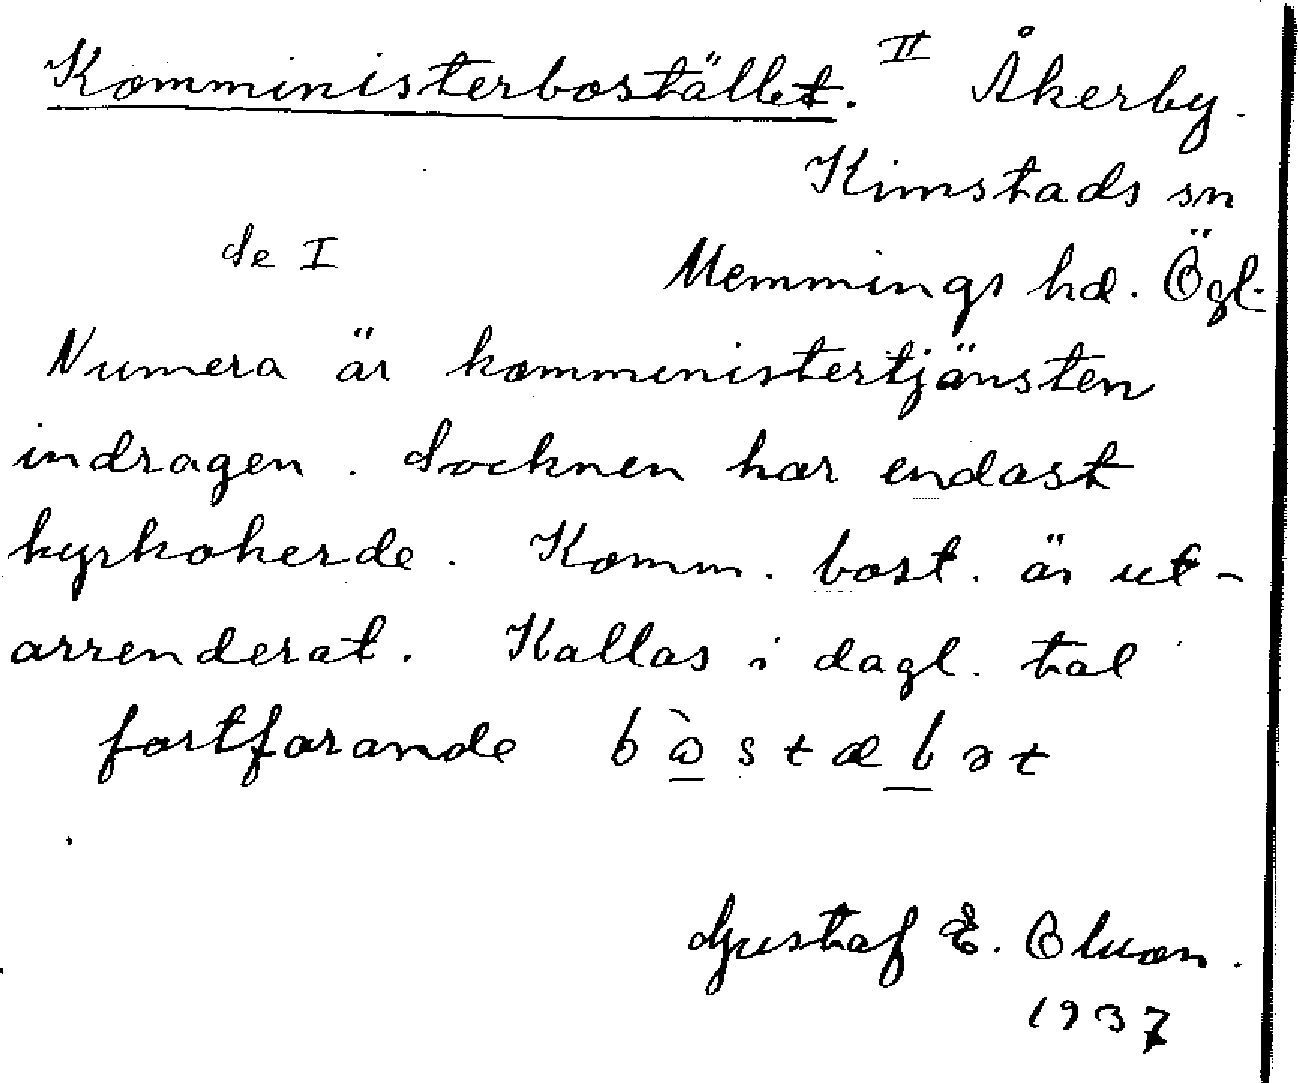 Komministerbostället. II Åkerby.
Kimstads sn
se I Memmings hd. Ögl.
Numera är komministertjänsten
indragen. Socknen har endast
kyrkoherde. Komm. bost. är ut-
arrenderat. Kallas i dagl. tal
fortfarande
Gustaf E.
1937